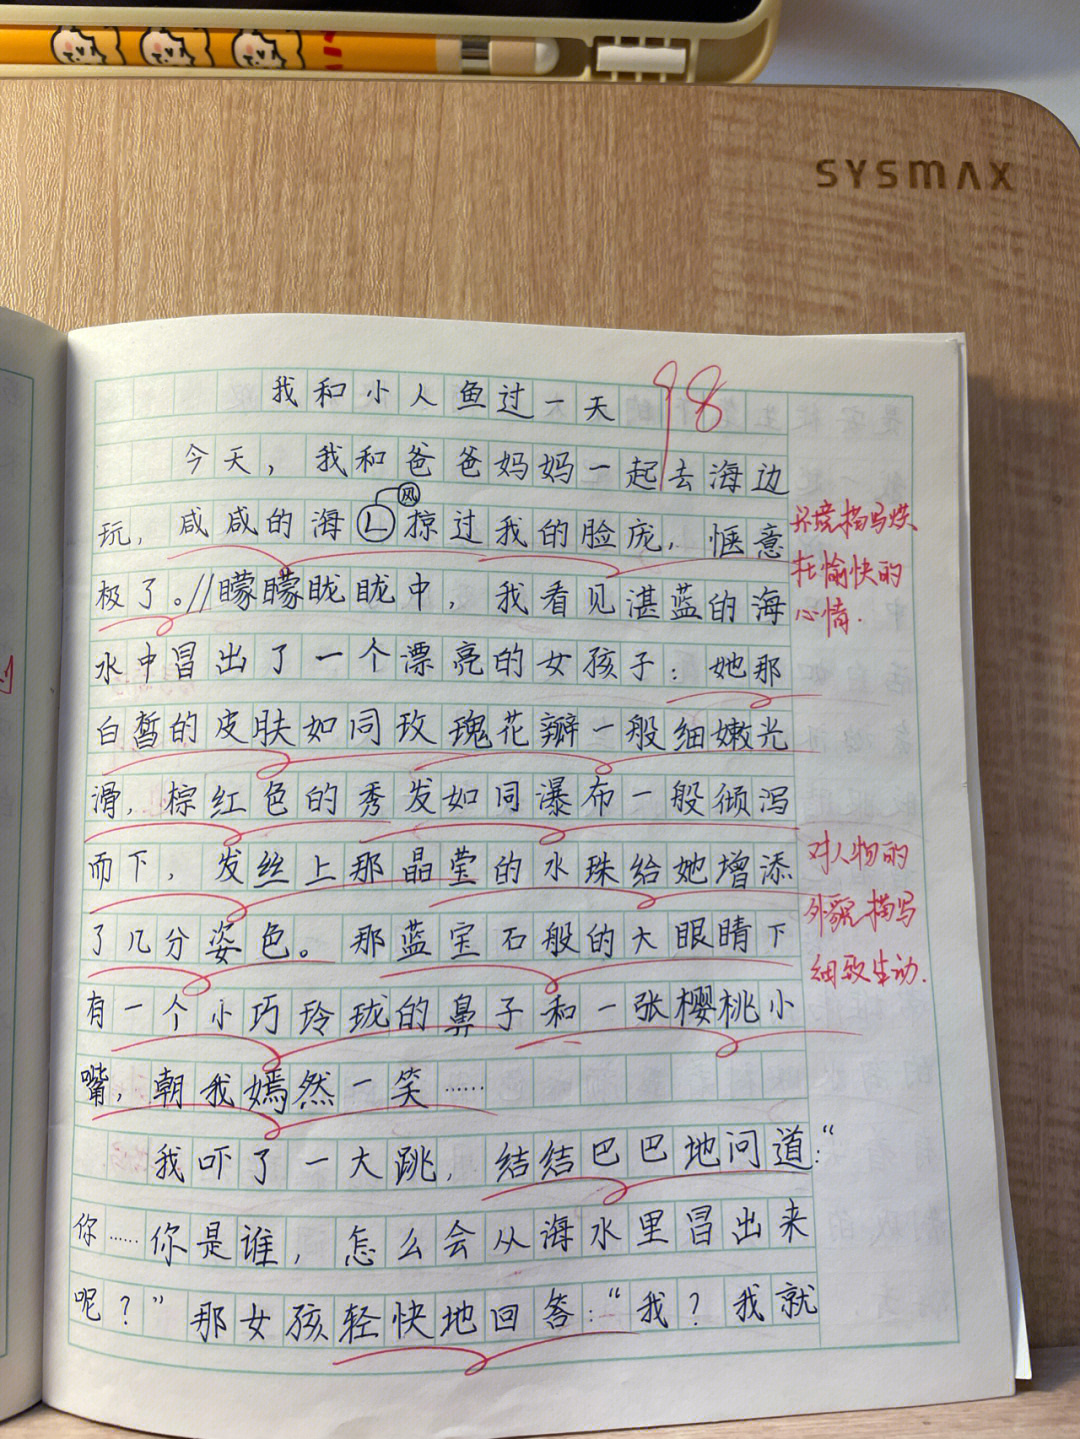 SYSMAX
我和小人鱼过一天
98
今天，我和爸爸妈妈一起去海边
玩，咸咸的海风掠过我的脸庞，惬意
极了。//矇矇眬眬中，我看见湛蓝的海
水中冒出了一个漂亮的女孩子：她那
白皙的皮肤如同玫瑰花瓣一般细嫩光
滑，棕红色的秀发如同瀑布一般倾泻
而下，发丝上那晶莹的水珠给她增添
了几分姿色。那蓝宝石般的大眼睛下
有一个小巧玲珑的鼻子和一张樱桃小
嘴，朝我嫣然一笑……
我吓了一大跳，结结巴巴地问道：“
你……你是谁，怎么会从海水里冒出来
呢？”那女孩轻快地回答：“我？我就
环境描写烘
托愉快的
心情.
对人物的
外貌描写
细致生动.